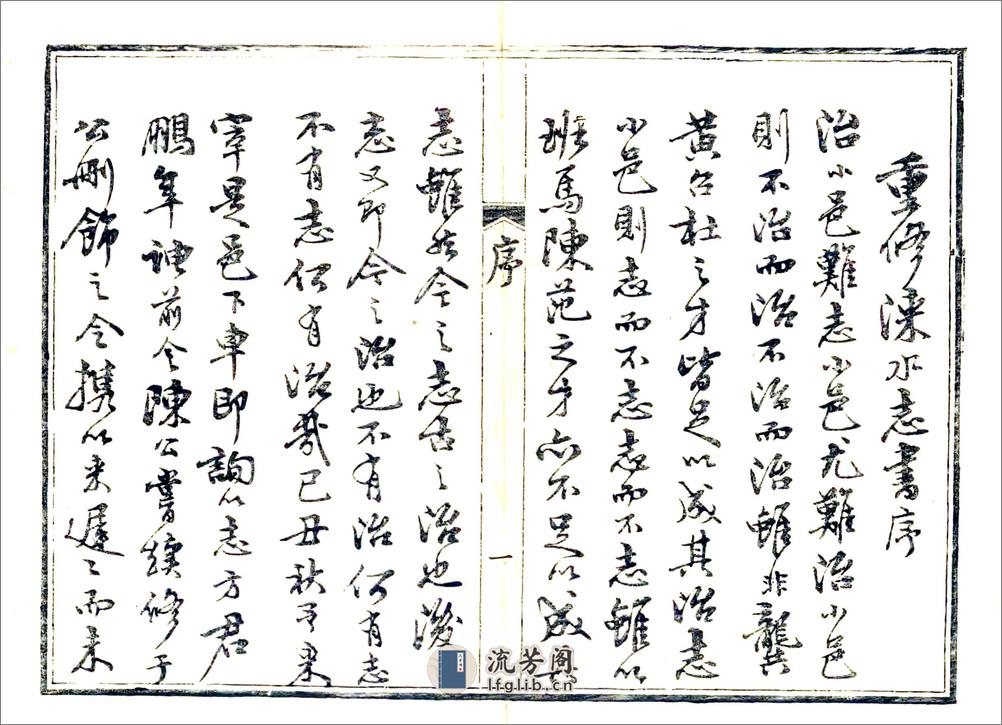 重修淶水志書序
治小邑難志小邑尤難治小邑
則不治而治不治而治雖非龔
黃召杜之才皆足以成其治志
小邑則志而不志志而不志雖以
班馬陳范之才亦不足以成其
序
一
志雖然今之志古之治也後
志又即今之治也不有治何有志
不有志何有治哉己丑秋予來
宰是邑下車即詢以志方君
鵬年前令陳公嘗續修于
公刪飾之今携以來遲〻而未
流芳阁
lfglib.cn